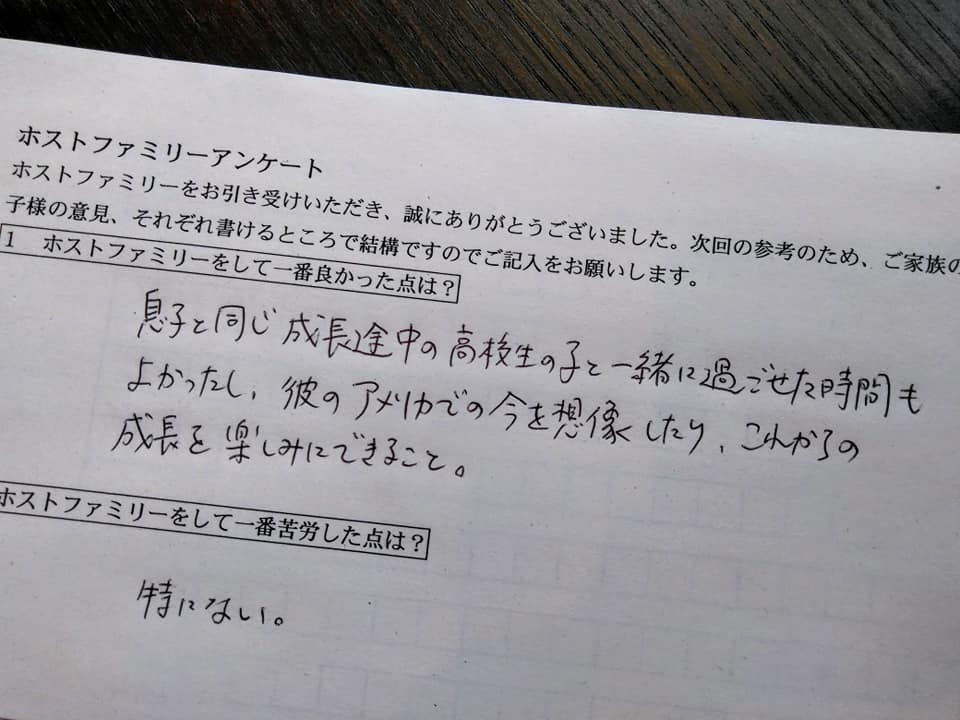 ホストファミリーアンケート
ホストファミリーをお引き受けいただき、誠にありがとうございました。次回の参考のため、ご家族の
子様の意見、それぞれ書けるところで結構ですのでご記入をお願いします。
1 ホストファミリーをして一番良かった点は?
息子と同じ成長途中の高校生の子と一緒に過ごせた時間も
よかったし、彼のアメリカでの今を想像したり、これからの
成長を楽しみにできること。
ホストファミリーをして一番苦労した点は?
特にない。